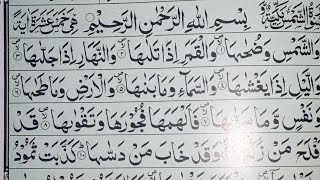 سورة الشمس مكية بسم الله الرحمن الرحيم هي خمس عشرة اية
والشمس وضحها والقمر اذا تلها والنهار اذا جلها
واليل اذا يغشها والسماء وما بنها والارض وما طحها
ونفس وما سوىها فالهمها فجورها وتقوىها قد
افلح من زكىها وقد خاب من دسها كذبت ثمود